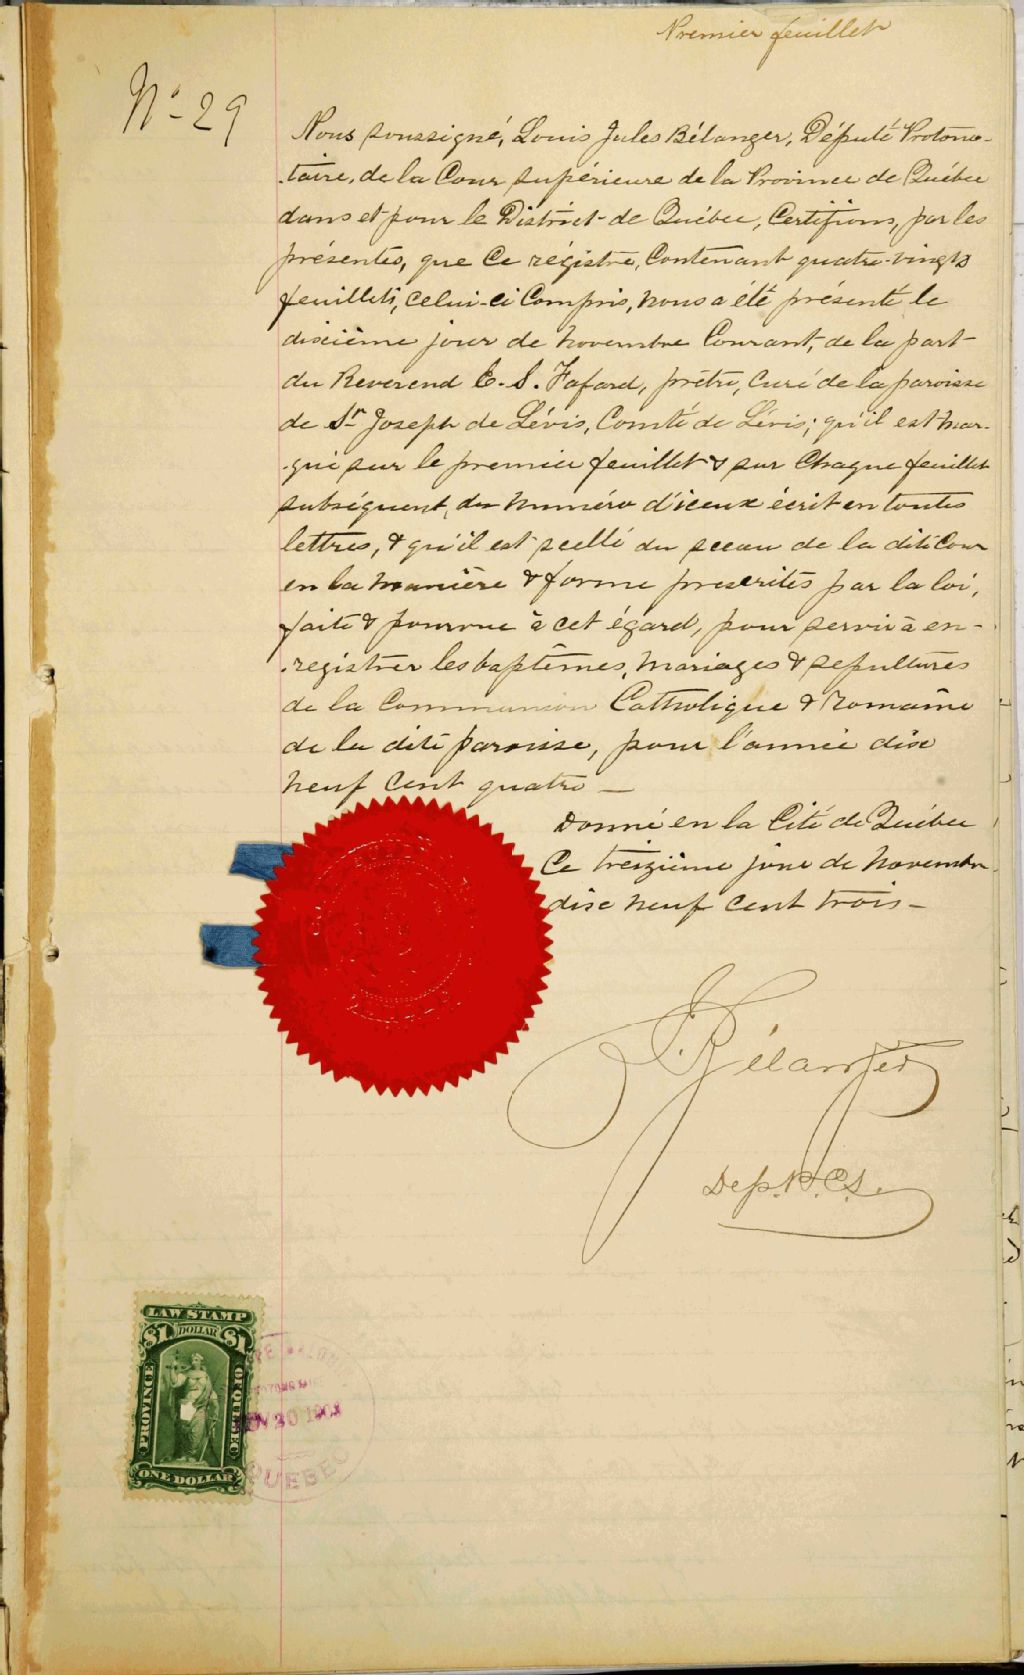 Premier feuillet
No 29
Nous soussigné, Louis Jules Bélanger, Député Protono-
-taire, de la Cour supérieure de la Province de Québec
dans et pour le District de Québec, Certifions, par les
présentes, que Ce régistre, Contenant quatre-vingts
feuillets, Celui-ci Compris, nous a été présenté le
dixième jour de novembre Courant, de la part
du Reverend E. S. Fafard, prêtre, Curé de la paroisse
de St Joseph de Lévis, Comté de Lévis; qu'il est mar-
-qué sur le premier feuillet & sur Chaque feuillet
subséquent, du numéro d'iceux écrit en toutes
lettres, & qu'il est scellé du sceau de la dite Cour
en la manière & forme prescrites par la loi,
faite & pourvue à cet égard, pour servir à en-
-registrer les baptêmes, mariages & sepultures
de la Communion Catholique & Romaine
de la dite paroisse, pour l'année dix
neuf Cent quatre —
Donné en la Cité de Québec
Ce treizième jour de novembre
dix neuf Cent trois —
J. Bélanger
Dep. P. C. S.
LAW STAMP
$1 DOLLAR $1
PROVINCE OF QUEBEC
ONE DOLLAR
NOV 20 1903
QUEBEC